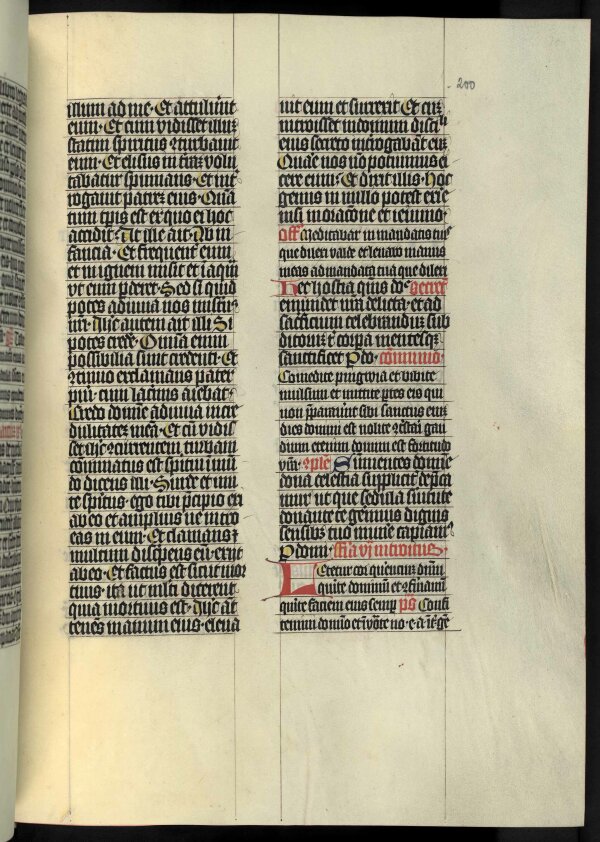 200
illum ad me. Et attulerūt
eum. Et cum vidisset illum
statim spiritus cturbauit
eum. Et elisus in terrā volu
tabatur spumans. Et int
rogauit patrem eius. Quā
tum tpis est ex quo ei hoc
accidit. At ille ait. Ab in
fancia. Et frequent eum
et in ignem misit et ī aqm
vt eum pderet. Sed si quid
potes adiuua nos
Jhc autem ait illi Si
potes crede. Omīa enim
possibilia sunt credenti. Et
cctinuo exclamans pater
pueri cum lacrimis aiebat.
Credo domine adiuua incre
dulitatem meā. Et cū vidis
set ihc ccurrentem turbam
commiatus est spiritui inmū
do dicens illi. Surde et mu
te spiritus. ego tibi pcipio exi
ab eo et amplius ne introe
as in eum. Et clamans et
multum discerpens eū. exiit
ab eo. Et factus est sicut mor
tuus. ita ut multi dicerent
quia mortuus est. Jhc āt
tenēs manum eius. eleua
uit eum et surrexit Et cum
introisset in domum discipuli
eius secreto introgabāt eum
Quare nos nō potuimus ei
cere eum. Et dixit illis. Hoc
genus in nullo potest exire
nisi in oracōne et ieiunio.
Off Meditabar in mandatis tuis
que dilexi valde et leuabo manus
meas ad mandata tua que dilexi
Hec hostia quis dn̄e Secret
emundet nrā delicta. et ad
sacficium celebrandum sub
ditorum t corpa mentesqz
sanctificet Pdo. communio
Comedite pinguia et bibite
mulsum et mittite ptes eis qui
non ppauerunt sibi sanctus enim
dies domini est nolite ctristari gau
dium etenim domini est fortitudo
vrā. cple Sumentes domine
dona celestia suppliciter depcā
mur. ut que sedula seruitute
donante te gerimus dignis
sensibus tuo munere capiamus
Pdom. fria vj introitus
Letetur cor querentium dnm
querite dominum et cfirmamini
querite faciem eius semper ps Confi
temini domino et inuocate no. e. a. int ge